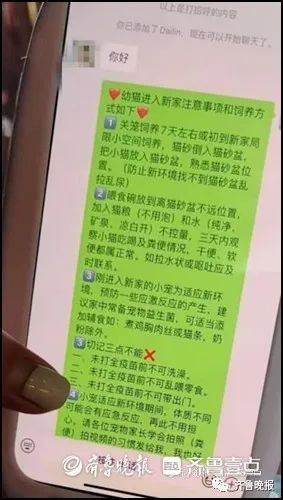 以上是打招呼的内容
你已添加了 Dailin，现在可以开始聊天了。
你好
❤️幼猫进入新家注意事项和饲养方
式如下❤️
1️⃣ 关笼饲养7天左右或初到新家局
限小空间饲养，猫砂倒入猫砂盆，
把小猫放入猫砂盆，熟悉猫砂盆位
置。（防止新环境找不到猫砂盆乱
拉乱尿）
2️⃣喂食碗放到离猫砂盆不远位置，
加入猫粮（不用泡）和水（纯净、
矿泉、凉白开）不控量，三天内观
察小猫吃喝及粪便情况，干便、软
便都属正常。如拉水状或呕吐应及
时联系。
3️⃣刚进入新家的小宠为适应新环
境，预防一些应激反应的产生，建
议家中常备宠物益生菌，可适当添
加辅食如：煮鸡胸肉丝或猫条，奶
粉除外。
3️⃣切记三点不能❌
一、未打全疫苗前不可洗澡。
二、未打全疫苗前不可乱喂零食。
三、未打全疫苗前不可带出门。
4️⃣小宠适应新环境期间，体质不同
可能会有应急反应，再此不用
请各位宠物家长学会拍照（粪
便）拍视频的习惯发给我，我也
齐鲁晚报 齐鲁壹点
齐鲁晚报